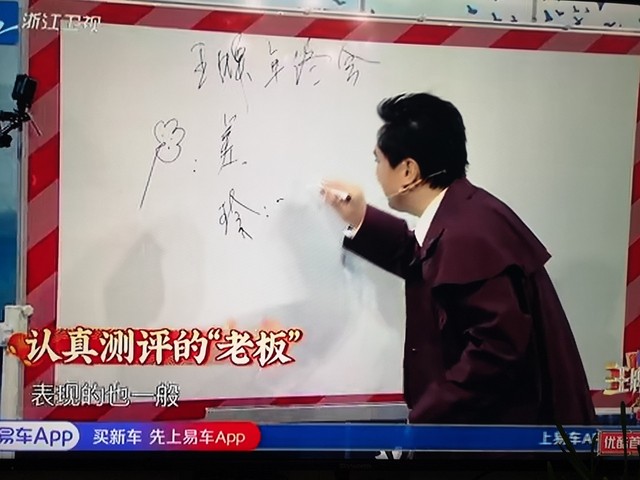 浙江卫视
王牌年终会
: 差
珍:
认真测评的“老板”
表现的也一般
易车App 买新车 先上易车App 上易车A
王牌
优酷首